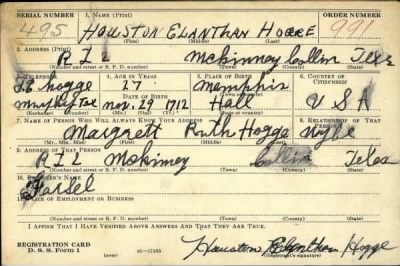 SERIAL NUMBER 1. NAME (Print) ORDER NUMBER
495 HOUSTON ELANTHAN HOGGE 991
(First) (Middle) (Last)
2. ADDRESS (Print)
R I L McKinney Collin Texas
(Number and street or R. F. D. number) (Town) (County) (State)
3. TELEPHONE 4. AGE IN YEARS 5. PLACE OF BIRTH 6. COUNTRY OF CITIZENSHIP
Hogge 27 Memphis
Murphy Tex Nov. 29 1912 Hall U S A
(Exchange) (Number) (Mo.) (Day) (Yr.) (State or country)
7. NAME OF PERSON WHO WILL ALWAYS KNOW YOUR ADDRESS 8. RELATIONSHIP OF THAT PERSON
Margrett Ruth Hogge Wife
(Mr., Mrs., Miss) (First) (Middle) (Last)
9. ADDRESS OF THAT PERSON
R I L McKinney Collin Texas
(Number and street or R. F. D. number) (Town) (County) (State)
10. EMPLOYER'S NAME
11. PLACE OF EMPLOYMENT OR BUSINESS
(Number and street or R. F. D. number) (Town) (County) (State)
I AFFIRM THAT I HAVE VERIFIED ABOVE ANSWERS AND THAT THEY ARE TRUE.
REGISTRATION CARD
D. S. S. Form 1 Houston Elanthan Hogge
(Registrant's signature)